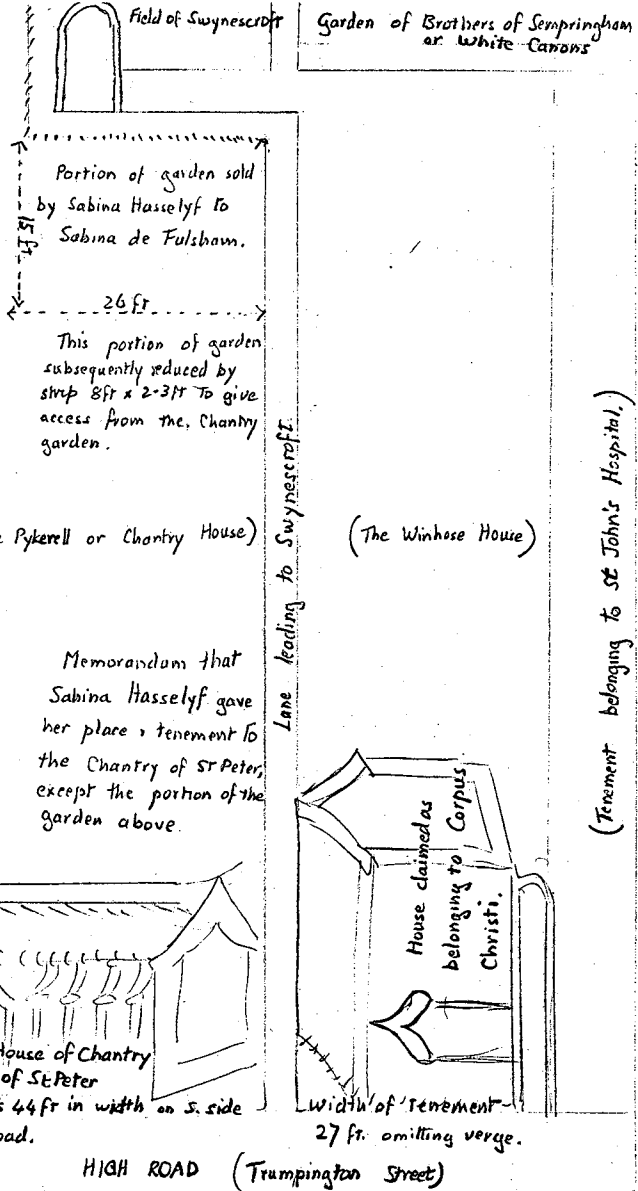 Field of Swynescroft
Garden of Brothers of Sempringham
or White Canons
Portion of garden sold
by Sabina Hasselyf to
Sabina de Fulsham.
15 ft
26 ft
This portion of garden
subsequently reduced by
strip 8ft x 2-3ft To give
access from the, Chantry
garden.
Pykerell or Chantry House)
Lane leading to Swynescroft.
(The Winhose House)
(Tenement belonging to St John's Hospital.)
Memorandum that
Sabina Hasselyf gave
her place & tenement To
the Chantry of ST Peter,
except the portion of the
garden above.
House claimed as
belonging to Corpus
Christi.
House of Chantry
of St Peter
44ft in width on S. side
Width of Tenement
27 ft. omitting verge.
HIGH ROAD (Trumpington Street)